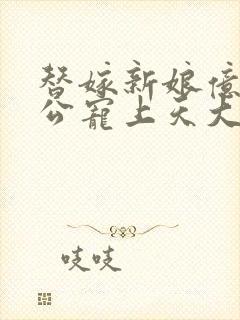 替嫁新娘億
公寵上天大
吱吱